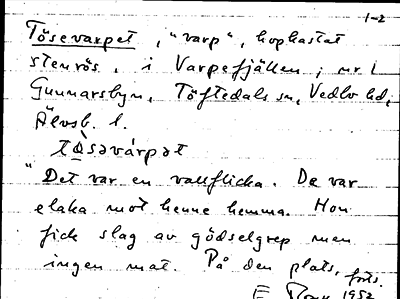 1-2
Tösevarpet, "varp", hopkastat
stenrös, i Varpefjällen, nr 1
Gunnarsbyn, Töftedals sn, Vedbo hd,
Älvsb. l.
"Det var en vallflicka. De var
elaka mot henne hemma. Hon
fick slag av gödselgrep men
ingen mat. På den plats, forts.
E 1952